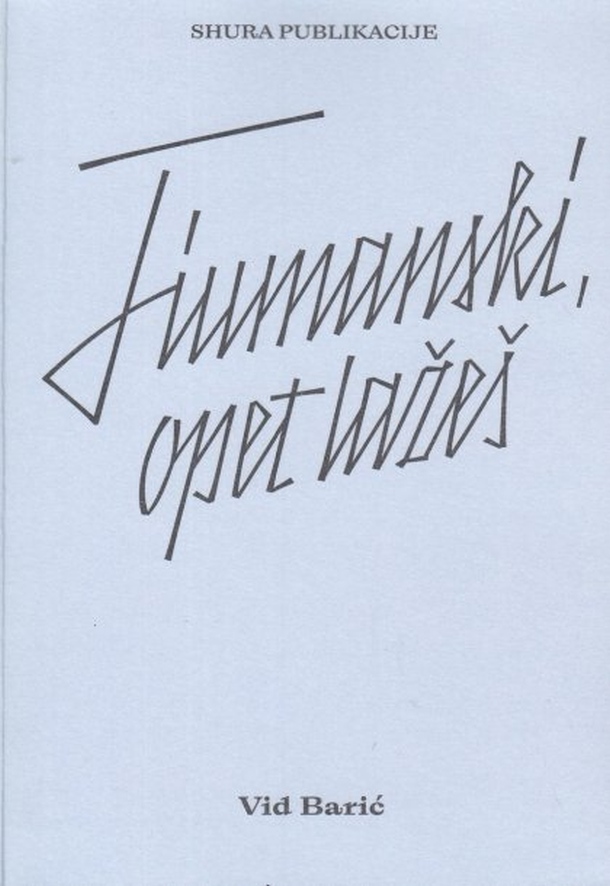 SHURA PUBLIKACIJE
Fiumanski,
opet lažeš
Vid Barić